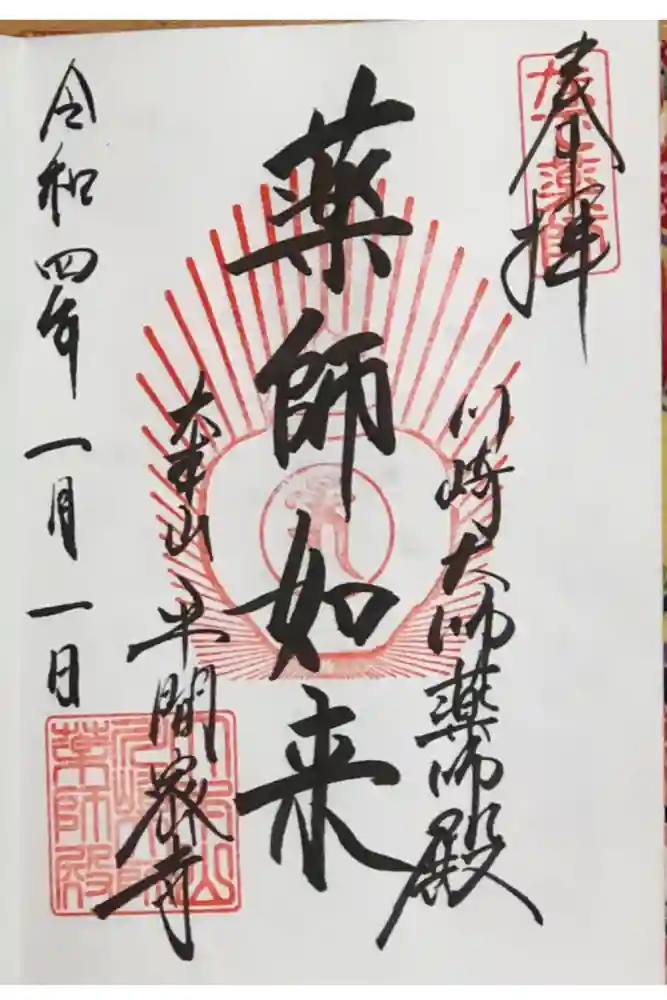 奉拝
川崎大師薬師殿
薬師如来
大本山
平間寺
令和四年一月一日
薬師殿